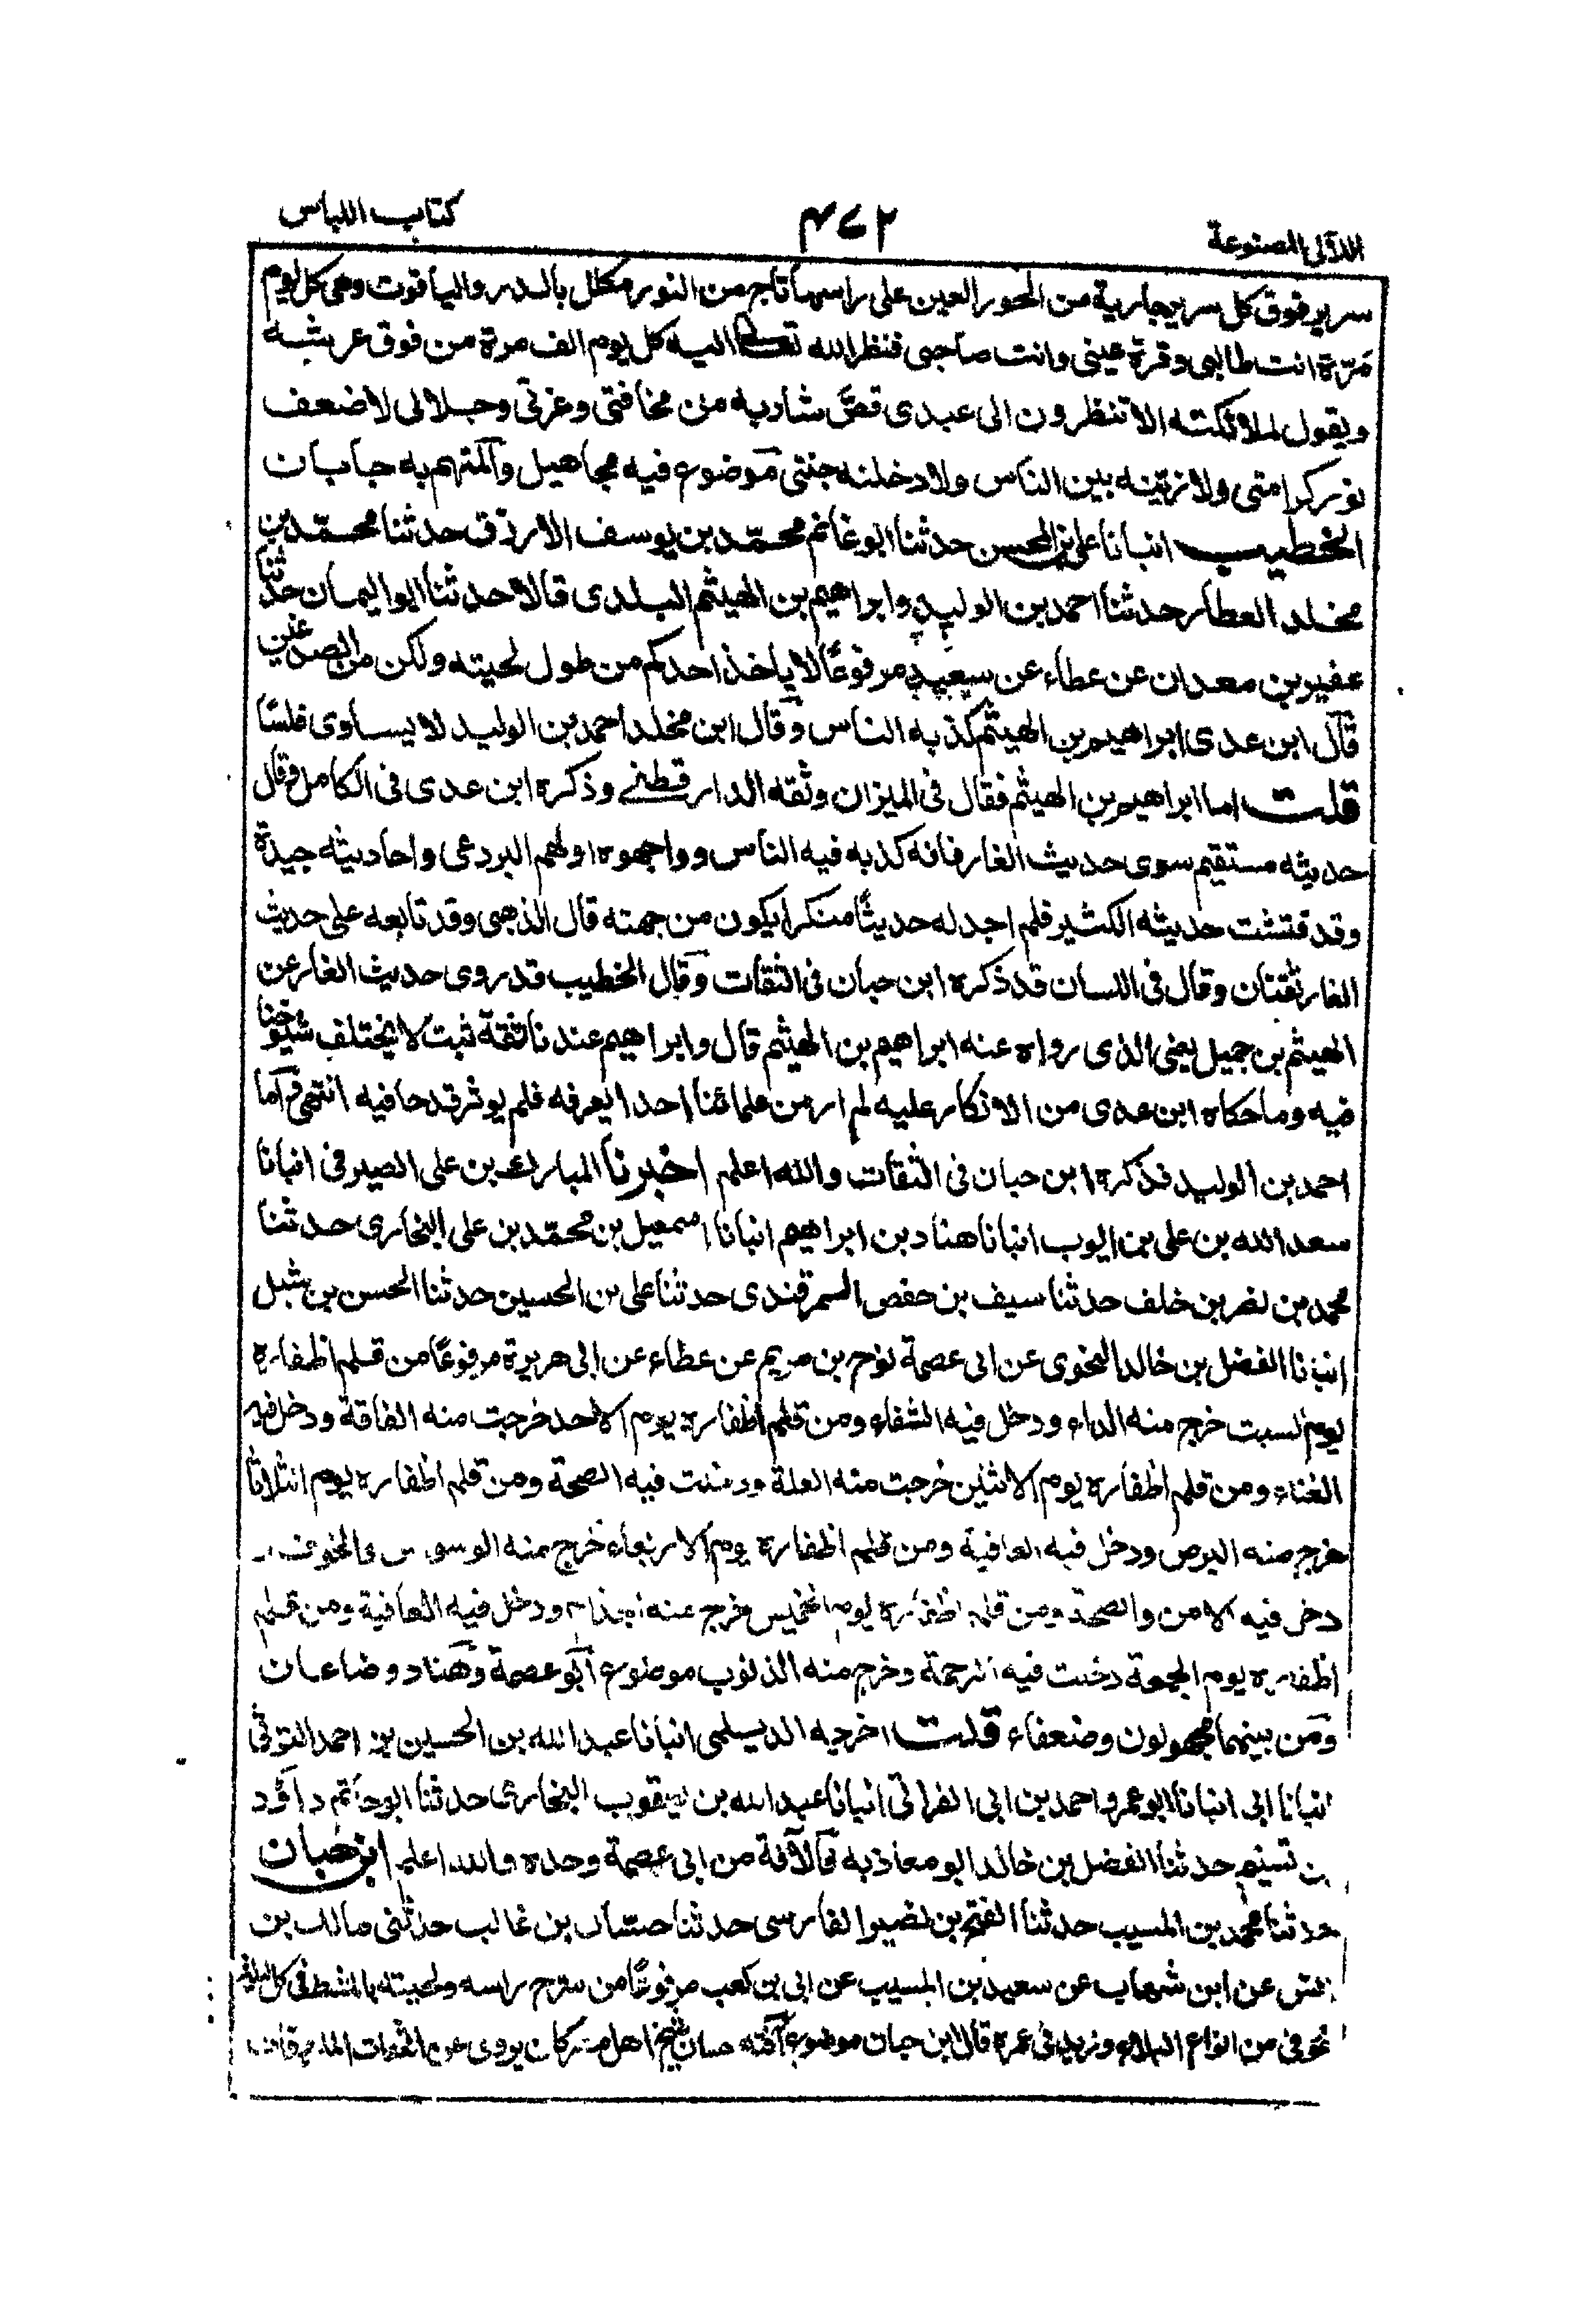 اللآلى المصنوعة
٤٧٢
كتاب اللباس
سرير فوق كل سرير جارية من الحور العين على راسها تاج من النور مكلل بالدر والياقوت وهى كل يوم
مَرّة انت طالبى وقرة عينى وانت صاحبى فنظر الله تعالى اليه كل يوم الف مرة من فوق عرشه
ويقول لملائكته الا تنظرون الى عبدى قصَّ شاربه من مخافتى وعزتى وجلالى لاضعف
نور كرامتى ولازينه بين الناس ولادخلنه جنتى موضوع فيه مجاهيل والمتهم به جابان
الخطيب انبانا على بن المحسن حدثنا ابو غانم محمّد بن يوسف الازرق حدثنا محمّد بن
مخلد العطار حدثنا احمد بن الوليد وابراهيم بن الهيثم البلدى قالا حدثنا ابو اليمان حدثنا
عفير بن معدان عن عطاء عن سعيد مرفوعًا لا ياخذ احدكم من طول لحيته ولكن من الصدغين
قال ابن عدى ابراهيم بن الهيثم كذبه الناس وقال ابن مخلد احمد بن الوليد لا يساوى فلسًا
قلت اما ابراهيم بن الهيثم فقال فى الميزان وثقه الدارقطنے وذكره ابن عدى فى الكامل وقال
حديثه مستقيم سوى حديث الغار فانه كذبه فيه الناس وواجهوه اولهم البردعى واحاديثه جيدة
وقد فتشت حديثه الكثير فلم اجد له حديثًا منكرا يكون من جهته قال الذهبى وقد تابعه على حديث
الغار ثقتان وقال فى اللسان قد ذكره ابن حبان فى الثقات وقال الخطيب قد روى حديث الغار عن
الهيثم بن جميل يعنى الذى رواه عنه ابراهيم بن الهيثم قال وابراهيم عندنا ثقة ثبت لا يختلف شيوخنا
فيه وما حكاه ابن عدى من الانكار عليه لم ار من علمائنا احدا يعرفه فلم يوثر قدحا فيه انتهى واما
احمد بن الوليد فذكره ابن حبان فى الثقات والله اعلم اخبرنا المبارك بن على الصيرفى انبانا
سعد الله بن على بن ايوب انبانا هناد بن ابراهيم انبانا اسمعيل بن محمّد بن على البخارى حدثنا
محمد بن نصر بن خلف حدثنا سيف بن حفص السمرقندى حدثنا على بن الحسين حدثنا الحسن بن شبل
انبانا الفضل بن خالد النحوى عن ابى عصمة نوح بن مريم عن عطاء عن ابى هريرة مرفوعًا من قلم اظفاره
يوم السبت خرج منه الداء ودخل فيه الشفاء ومن قلم اظفاره يوم الاحد خرجت منه الفاقة ودخل فيه
الغناء ومن قلم اظفاره يوم الاثنين خرجت منه العلة ودخلت فيه الصحة ومن قلم اظفاره يوم الثلاثا
خرج منه البرص ودخل فيه العافية ومن قلم اظفاره يوم الاربعاء خرج منه الوسواس والخوف
دخل فيه الامن والصحة ومن قلم اظفاره يوم الخميس خرج منه الجذام ودخل فيه العافية ومن قلم
اظفاره يوم الجمعة دخلت فيه الرحمة وخرج منه الذنوب موضوع ابو عصمة وهناد وضاعان
ومن بينهما مجهولون وضعفاء قلت اخرجه الديلمى انبانا عبد الله بن الحسين بن احمد التوثى
انبانا ابى انبانا ابو عمرو احمد بن ابى الفراتى انبانا عبد الله بن يعقوب البخارى حدثنا ابو حاتم داؤد
بن تسنيم حدثنا الفضل بن خالد ابو معاذ به فالآفة من ابى عصمة وحده والله اعلم ابن حبان
حدثنا محمد بن المسيب حدثنا الفتح بن نصير الفارسى حدثنا حسّان بن غالب حدثنى مالك بن
انس عن ابن شهاب عن سعيد بن المسيب عن ابى بن كعب مرفوعًا من سرح راسه ولحيته بالمشط فى كل ليلة
عوفى من انواع البلاء وزيد فى عمره قال ابن حبان موضوع آفته حسان شيخ اهل مصر كان يروى عن الثقات